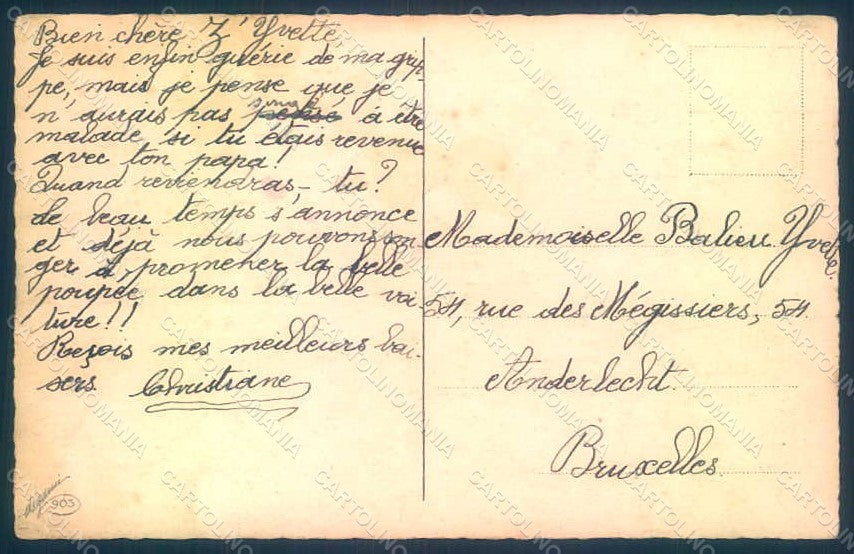 Bien chère Z' Yvette,
Je suis enfin guérie de ma grip-
pe, mais je pense que je
n'aurais pas songé à être
malade si tu étais revenue
avec ton papa!
Quand reviendras-tu?
Le beau temps s'annonce
et déjà nous pouvons son-
ger à promener la belle
poupée dans la belle voi-
ture!!
Reçois mes meilleurs bai-
sers Christiane
Mademoiselle Balieu Yvette.
54, rue des Mégissiers, 54.
Anderlecht.
Bruxelles.
903
CARTOLINOMANIA